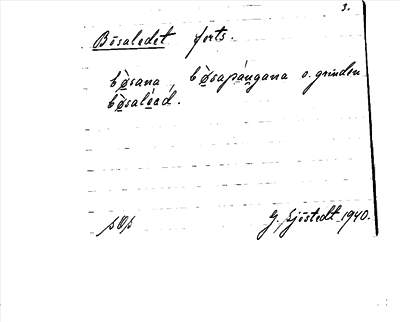 3.
Bösaledet forts.
bø̀sana, bø̀sapángana o. grinden
bø̀saléad.
G. Sjöstedt 1940.